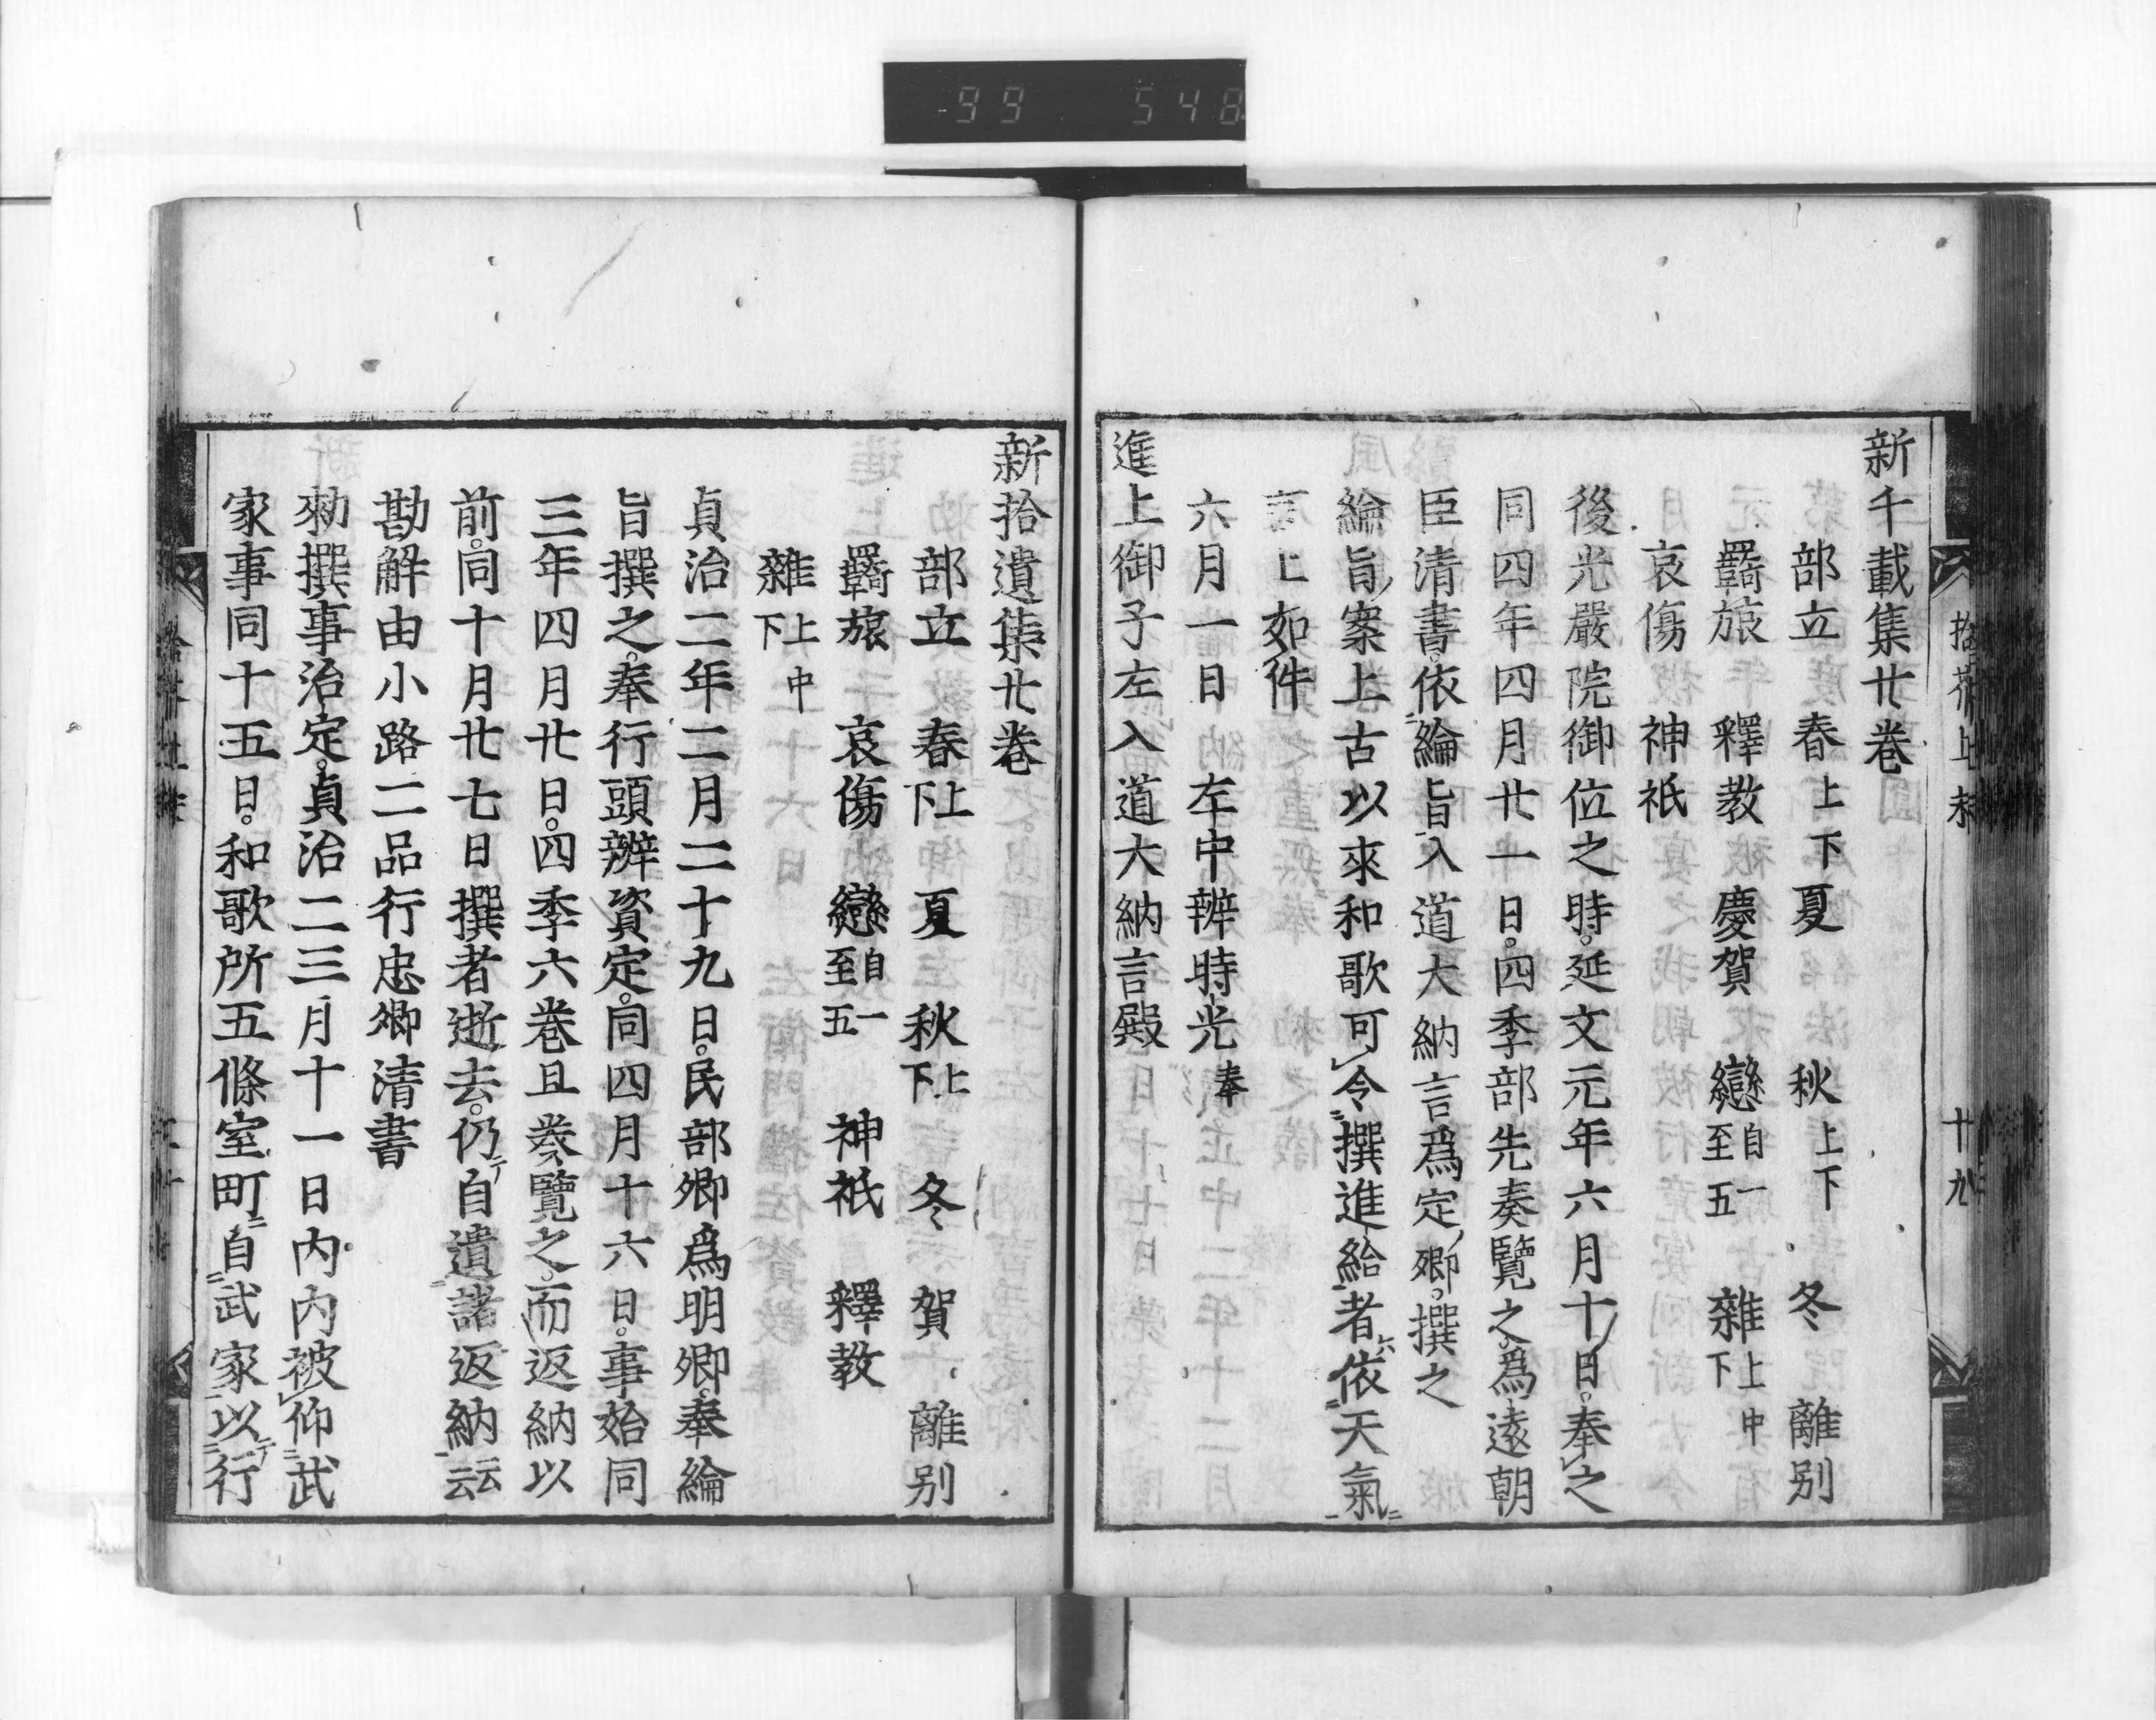 99 548
拾芥上末 十九
新千載集廿巻
部立 春上下 夏 秋上下 冬 離別
羇旅 釋教 慶賀 戀自一至五 雜上中下
哀傷 神祇
後光嚴院御位之時。延文元年六月十日。奉之
同四年四月廿一日。四季部先奏覽之。爲遠朝
臣清書。依綸旨入道大納言爲定卿。撰之
綸旨案上古以來和歌可令撰進給者依天氣
言上如件
六月一日 左中辨時光奉
進上御子左入道大納言殿
新拾遺集廿巻
部立 春上下 夏 秋上下 冬 賀 離別
羇旅 哀傷 戀自一至五 神祇 釋教
雜上中下
貞治二年二月二十九日。民部卿爲明卿奉綸
旨撰之。奉行頭辨資定。同四月十六日。事始同
三年四月廿日。四季六巻且奏覽之。而返納以
前。同十月廿七日撰者逝去。仍自遺諸返納云云
勘解由小路二品行忠卿清書
勅撰事治定。貞治二三月十一日内内被仰武
家事同十五日。和歌所五條室町自武家以行